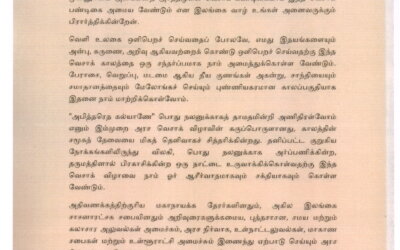 பண்டிகை அமைய வேண்டும் என இலங்கை வாழ் உங்கள் அனைவருக்கும்
பிரார்த்திக்கின்றேன்.
வெளி உலகை ஒளிபெறச் செய்வதைப் போலவே, எமது இதயங்களையும்
அன்பு, கருணை, அறிவு ஆகியவற்றைக் கொண்டு ஒளிபெறச் செய்வதற்கு இந்த
வெசாக் காலத்தை ஒரு சந்தர்ப்பமாக நாம் அமைத்துக்கொள்ள வேண்டும்.
பேராசை, வெறுப்பு, மடமை ஆகிய தீய குணங்கள் அகன்று, சாந்தியையும்
சமாதானத்தையும் மேலோங்கச் செய்யும் புண்ணியகரமான காலப்பகுதியாக
இதனை நாம் மாற்றிக்கொள்வோம்.
"அபித்தரேத கல்யாணே" பொது நலனுக்காகத் தாமதமின்றி அணிதிரள்வோம்
எனும் இம்முறை அரச வெசாக் விழாவின் கருப்பொருளானது, காலத்தின்
சமூகத் தேவையை மிகத் தெளிவாகச் சித்தரிக்கின்றது. தனிப்பட்ட குறுகிய
நோக்கங்களிலிருந்து விலகி, பொது நலனுக்காக அர்ப்பணிக்கின்ற,
தருமத்தினால் பிரகாசிக்கின்ற ஒரு நாட்டை உருவாக்கிக்கொள்வதற்கு இந்த
வெசாக் விழாவை நாம் ஓர் ஆசீர்வாதமாகவும் சக்தியாகவும் கொள்ள
வேண்டும்.
அதிவணக்கத்திற்குரிய மகாநாயக்க தேரர்களினதும், அகில இலங்கை
சாசனாரட்சக சபையினதும் அறிவுரைகளுக்கமைய, புத்தசாசன, சமய மற்றும்
கலாசார அலுவல்கள் அமைச்சும், அரச நிர்வாக, உள்நாட்டலுவல்கள், மாகாண
சபைகள் மற்றும் உள்ளூராட்சி அமைச்சும் இணைந்து ஏற்பாடு செய்யும் அரச